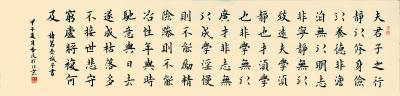 夫君子之行
靜以修身儉
以養德非澹
泊無以明志
非寧靜無以
致遠夫學須
靜也才須學
也非學無以
廣才非志無
以成學淫慢
則不能勵精
險躁則不能
冶性年與時
馳意與日去
遂成枯落多
不接世悲守
窮廬將復何
及
諸葛亮誡子書